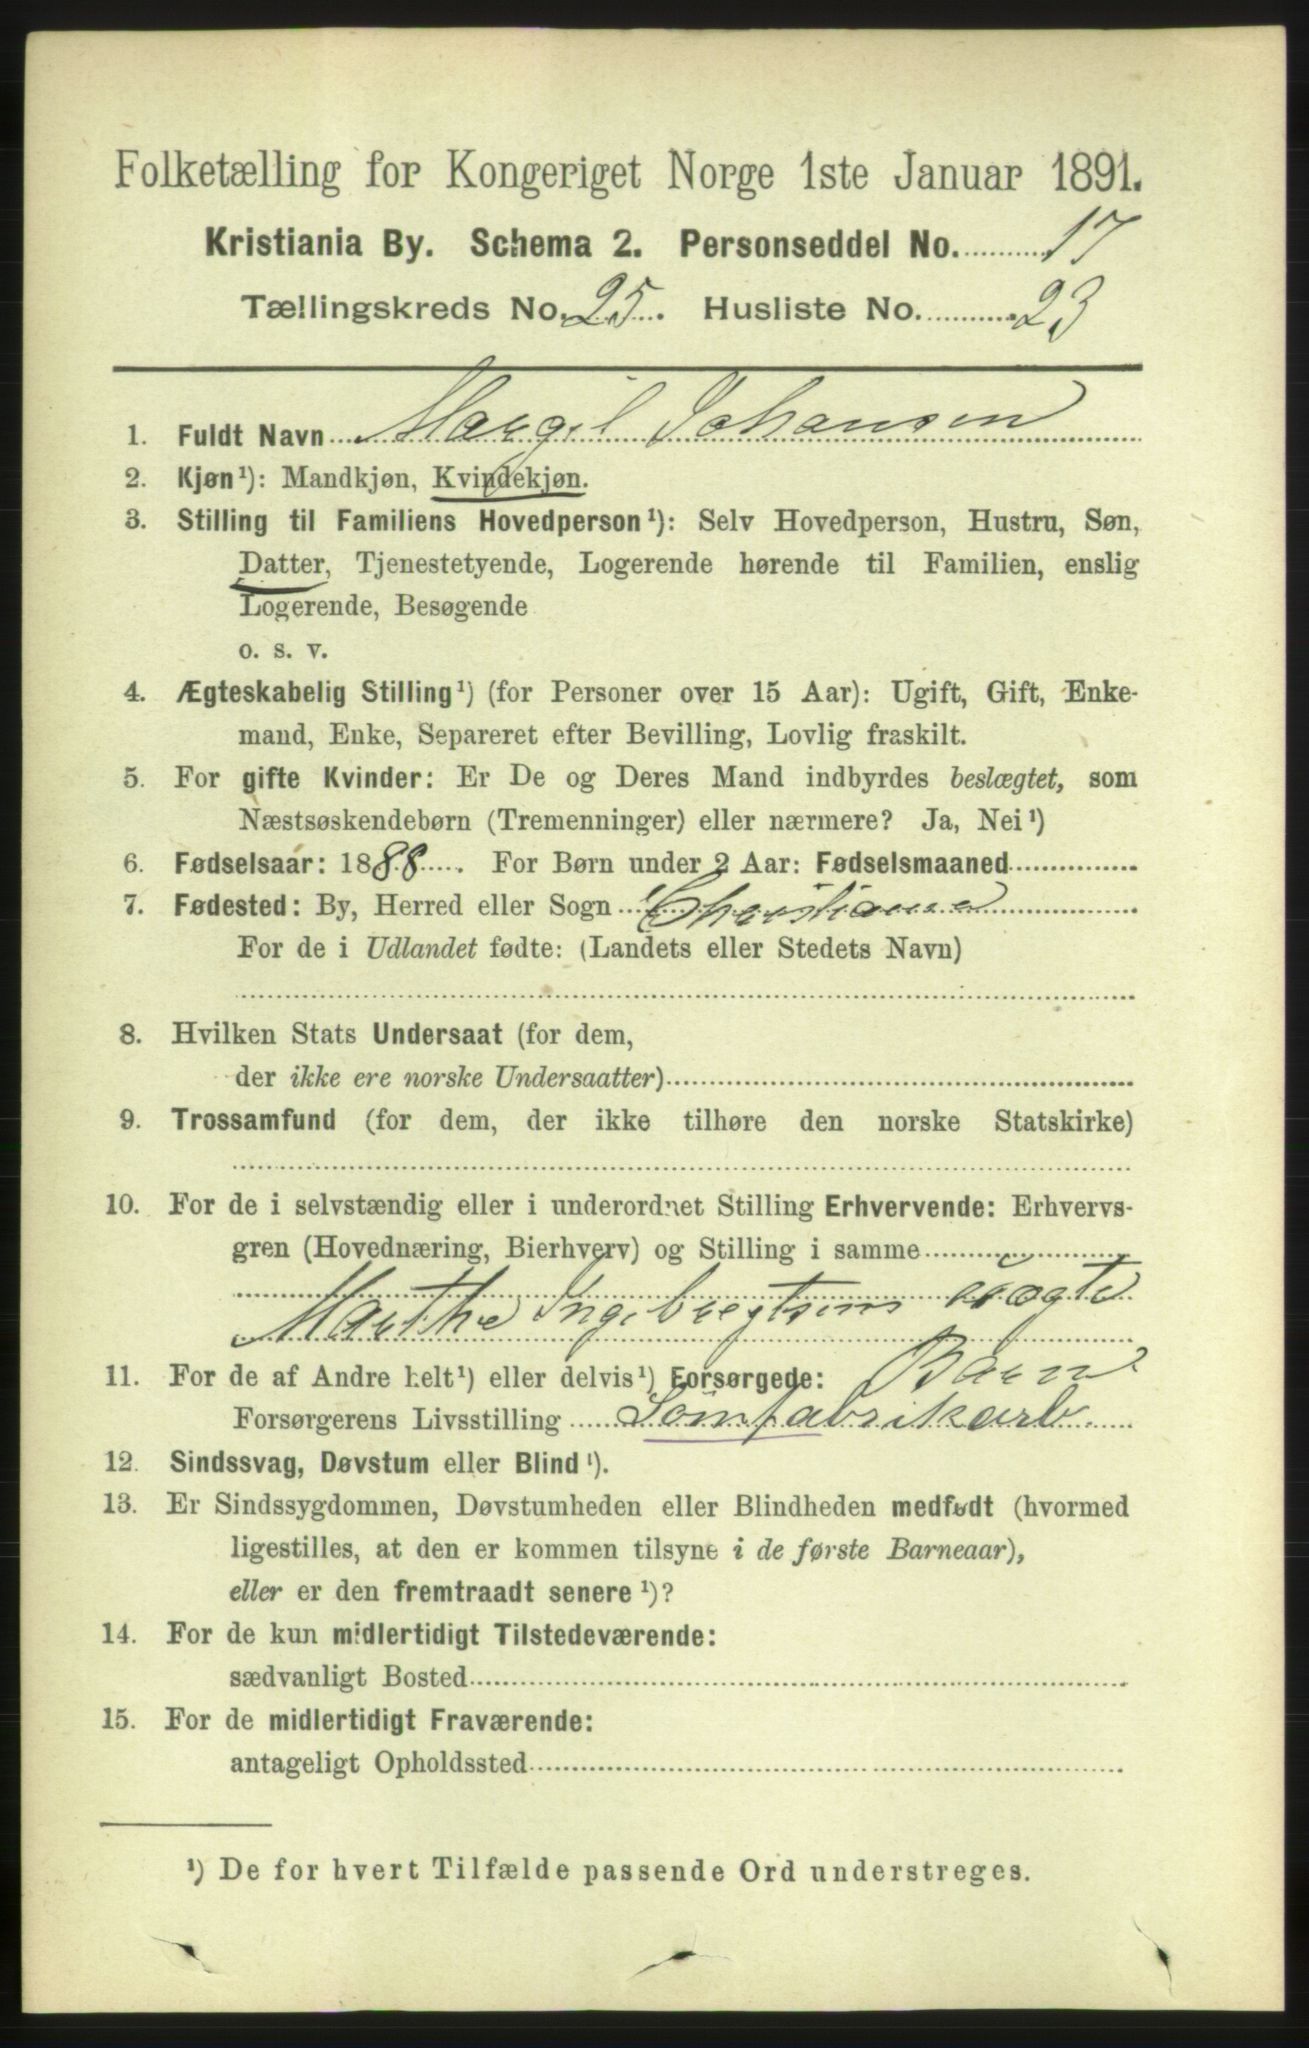 Folketælling for Kongeriget Norge 1ste Januar 1891.
Kristiania By. Schema 2. Personseddel No. 17
Tællingskreds No. 25. Husliste No. 23
1. Fuldt Navn Margit Johansen
2. Kjøn¹): Mandkjøn, Kvindekjøn.
3. Stilling til Familiens Hovedperson¹): Selv Hovedperson, Hustru, Søn,
Datter, Tjenestetyende, Logerende hørende til Familien, enslig
Logerende, Besøgende
o. s. v.
4. Ægteskabelig Stilling¹) (for Personer over 15 Aar): Ugift, Gift, Enke-
mand, Enke, Separeret efter Bevilling, Lovlig fraskilt.
5. For gifte Kvinder: Er De og Deres Mand indbyrdes beslægtet, som
Næstsøskendebørn (Tremenninger) eller nærmere? Ja, Nei¹)
6. Fødselsaar: 1888. For Børn under 2 Aar: Fødselsmaaned
7. Fødested: By, Herred eller Sogn Christiania
For de i Udlandet fødte: (Landets eller Stedets Navn)
8. Hvilken Stats Undersaat (for dem,
der ikke ere norske Undersaatter)
9. Trossamfund (for dem, der ikke tilhøre den norske Statskirke)
10. For de i selvstændig eller i underordnet Stilling Erhvervende: Erhvervs-
gren (Hovednæring, Bierhverv) og Stilling i samme
Marthe Ingebregtsens uægte
11. For de af Andre helt¹) eller delvis¹) Forsørgede: Barn
Forsørgerens Livsstilling Sömfabrikarb.
12. Sindssvag, Døvstum eller Blind¹).
13. Er Sindssygdommen, Døvstumheden eller Blindheden medfødt (hvormed
ligestilles, at den er kommen tilsyne i de første Barneaar),
eller er den fremtraadt senere¹)?
14. For de kun midlertidigt Tilstedeværende:
sædvanligt Bosted
15. For de midlertidigt Fraværende:
antageligt Opholdssted
¹) De for hvert Tilfælde passende Ord understreges.